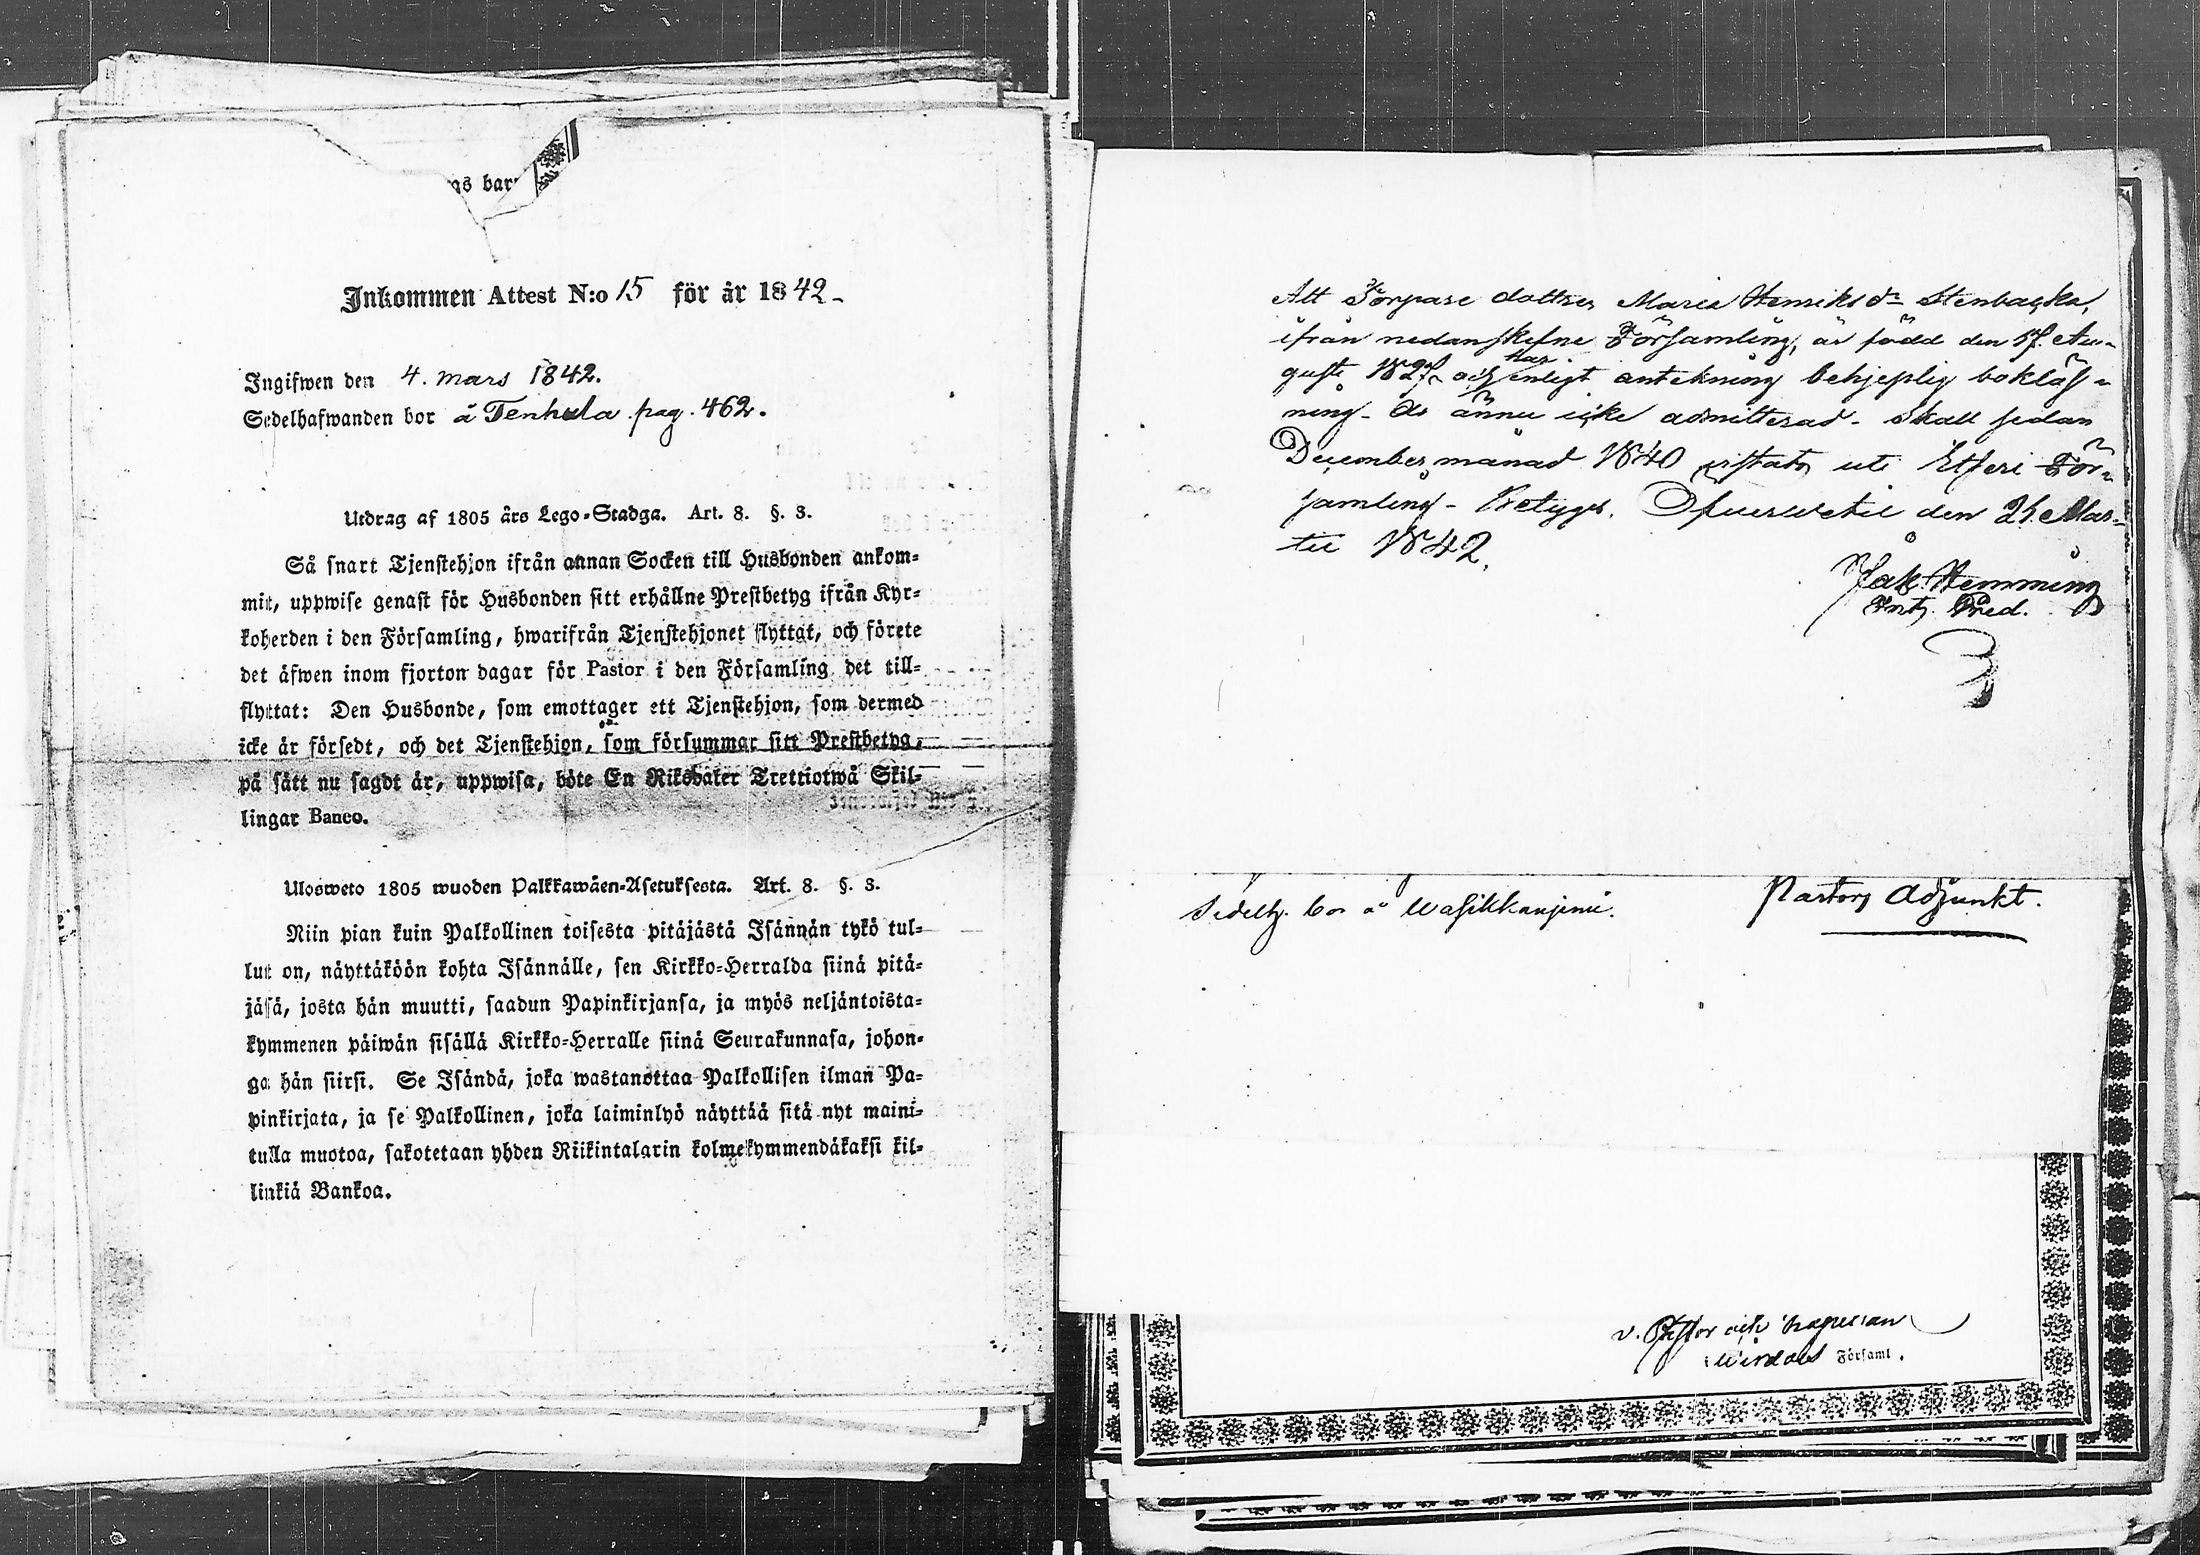 gs bar
Inkommen Attest N:o 15 för år 1842
Ingifwen den 4. mars 1842.
Sedelhafwanden bor å Tenhula pag. 462.
Utdrag af 1805 års Lego-Stadga. Art. 8. §. 3.
Så snart Tjenstehjon ifrån annan Socken till Husbonden ankom-
mit, uppwise genast för Husbonden sitt erhållne Prestbetyg ifrån Kyr-
koherden i den Församling, hwarifrån Tjenstehjonet flyttat, och förete
det äfwen inom fjorton dagar för Pastor i den Församling det till-
flyttat: Den Husbonde, som emottager ett Tjenstehjon, som dermed
icke är försedt, och det Tjenstehjon, som försummar sitt Prestbetyg,
på sätt nu sagdt är, uppwisa, böte En Riksdaler Trettiotwå Skil-
lingar Banco.
Ulosweto 1805 wuoden Palkkawäen-Asetuksesta. Art. 8. §. 3.
Niin pian kuin Palkollinen toisesta pitäjästä Isännän tykö tul-
lut on, näyttäköön kohta Isännälle, sen Kirkko-Herralda siinä pitä-
jäsä, josta hän muutti, saadun Papinkirjansa, ja myös neljäntoista-
kymmenen päiwän sisällä Kirkko-Herralle siinä Seurakunnasa, johon-
ga hän siirsi. Se Isändä, joka wastanottaa Palkollisen ilman Pa-
pinkirjata, ja se Palkollinen, joka laiminlyö näyttää sitä nyt maini-
tulla muotoa, sakotetaan yhden Riikintalarin kolmekymmendäkaksi kil-
linkiä Bankoa.
Att Torpare dottren Maria Henriksdr Stenbacka,
ifrån nedanskrefne Församling, är född den 17. Au-
gusti 1827, och har enligt antekning behjeplig bokläs-
ning. Är ännu icke admitterad. Skall sedan
December månad 1840 vistats uti Etseri För-
samling. Betygar. den 21. Mar-
tii 1842.
Jak. Hemming
Pred.
Sedelh. bor å Wasikkaniemi. Pastors Adjunkt.
v. Pastor och Kapellan
i Wirdois Församl.